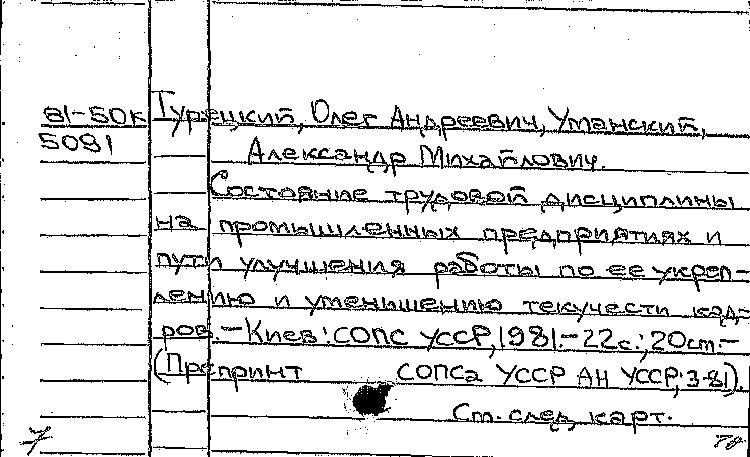 81-50к Турецкий, Олег Андреевич, Уманский,
5081 Александр Михайлович.
Состояние трудовой дисциплины
на промышленных предприятиях и
пути улучшения работы по ее укреп-
лению и уменьшению текучести кад-
ров.-Киев: СОПС УССР, 1981.-22с.; 20см.-
(Препринт СОПСа УССР АН УССР; 3-81).
См. след. карт.